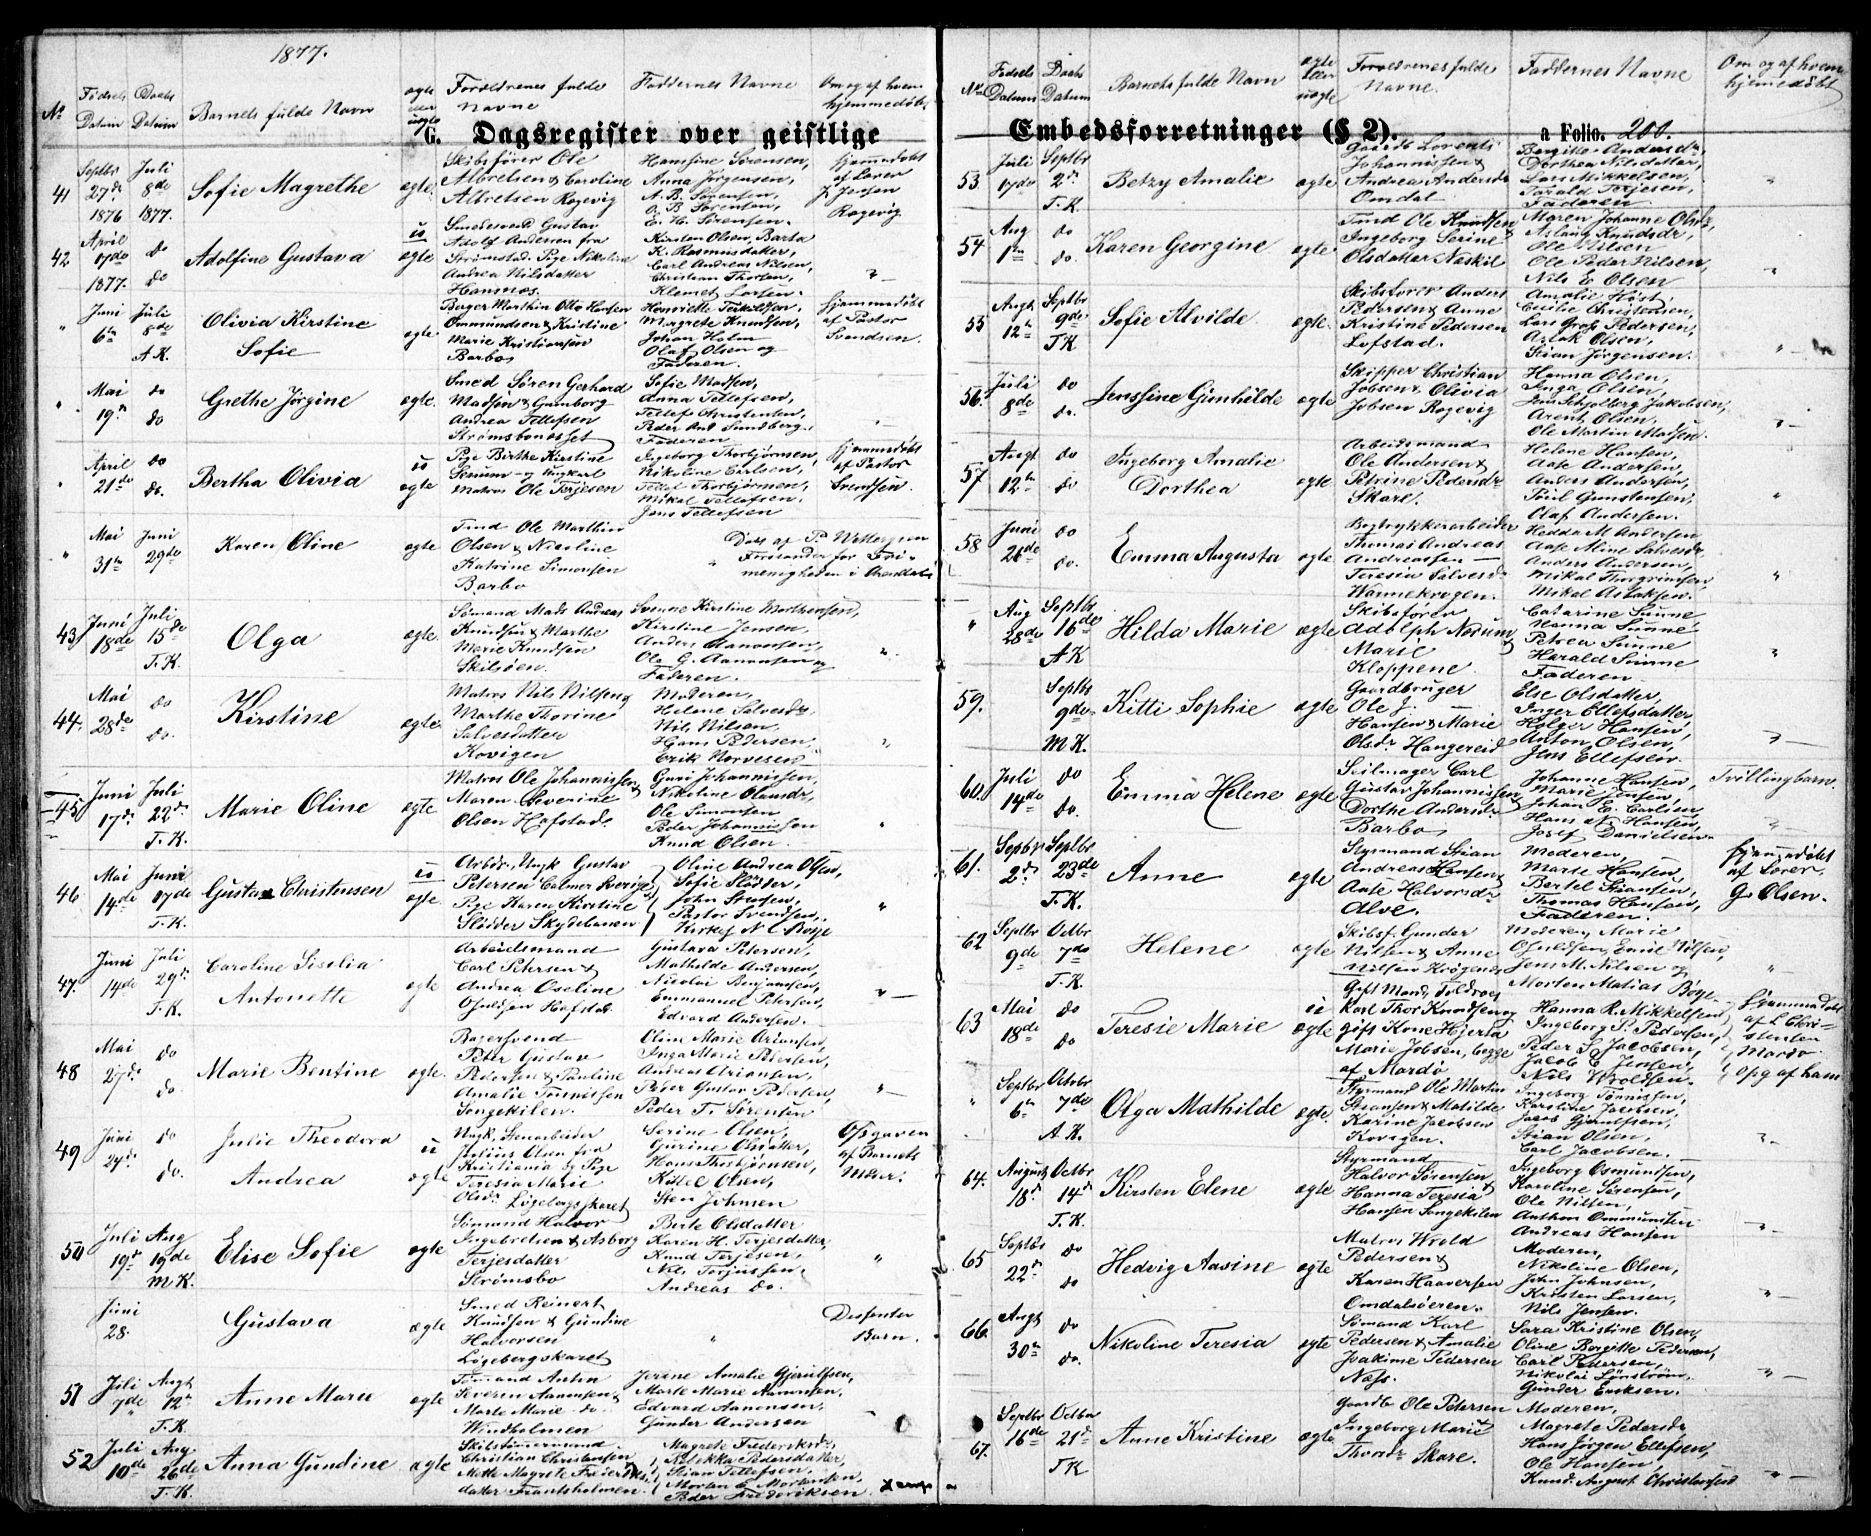 1877.
No Fødsels Datum Daabs Datum Barnets fulde Navn ægte eller uægte Forældrenes fulde Navne Faddernes Navne Om og af hvem hjemmedøbt
G. Dagsregister over geistlige
41 Septbr 27de 1876 Juli 8de 1877. Sofie Magrethe ægte
Skibsfører Ole
Albretsen & Caroline
Albretsen Ragevig
Hansine Sørensen,
Anna Jørgensen,
A. B. Sørensen,
O. B. Sørensen,
E. H. Sørensen.
hjemmedøbt
af Lærer
J. Jensen
Ragevig
42 April 17de 1877. do do Adolfine Gustava u ægte
Smedesvend Gustav
Adolf Andersen fra
Strømstad. Pige Nikoline
Andrea Nilsdatter
Hansnæs.
Kirsten Olsen, Barta
K. Rasmusdatter,
Carl Andreas Nilsen,
Christian Thorsen,
Klemet Larsen.
" Juni 6te Juli 8de A.K. Olivia Kirstine
Sofie ægte
Marie Kristiansen
Barbo
Henriette Terkildsen,
Margrete Knudsen,
Johan Holm
Olaf Olsen og
Faderen.
hjemmedøbt
af Pastor
Svendsen.
" Mai 19de do do Grethe Jørgine ægte.
Smed Søren Gerhard
Madsen & Gunborg
Andrea Tellefsen
Strømsbonesset
Sofie Madsen,
Anna Tellefsen,
Tellef Christensen,
Peder And Sundberg,
Faderen
" April 21de do do. Bertha Olivia u ægte
Pige Birthe Kirstine
Matros Ole Terjesen
Ingeborg Thorbjørnsen,
Nikoline Carlsen,
Tellef Thorbjørnsen,
Mikal Tellefsen,
Jens Tellefsen
hjemmedøbt
af Pastor
Svendsen.
" Mai 31te Juni 29de Karen Oline ægte
Tmd Ole Marthin
Olsen & Nicoline
Katrine Simonsen
Barbo
Døbt af P. Wettergren
Forstander for Frimenigheden i Arendal
43 Juni 18de Juli 15de T.K. Olga ægte.
Sømand Mads Andreas
Knudsen & Marthe
Marie Knudsen
Skilsøen.
Kirstine Jensen,
Anders Aanonsen,
Ole G. Aanonsen,
Faderen.
44. Mai 28de do do. Kirstine ægte
Matros Nils Nilsen &
Marthe Thorine
Salvesdatter
Kovigen
Moderen,
Helene Salvesdr,
Nils Nilsen,
Hans Pedersen,
45 Juni 17de Juli 22de T.K. Marie Oline ægte
Matros Ole Johannissen &
Maren Severine
Olsen Hofstad.
Guri Johannissen,
Nikoline Olausdr,
Ole Simonsen
Peder Johannissen
Knud Olsen.
46 Mai 14de Juni 17de T.K. Gustav Christensen u ægte
Arbdr. Ungk Gustav
Petersen Calmar Sverige
Pige Karen Kirstine
Slødder Skydebanen
Oline Andrea Olsen,
Sofie Slødder,
Pastor Svendsen,
47. Juni 14de Juli 29de T.K. Caroline Sisilia
Antonette ægte
Arbeidsmand
Carl Petersen &
Andrea Oseline
Osuldsen Hofstad
Gustava Petersen,
Mathilde Andersen,
Nicolai Benjamsen,
Emmanuel Petersen,
Edvard Andersen.
48 Mai 27de do do. Marie Bentine ægte.
Bagersvend
Peter Gustav
Pedersen & Pauline
Amalie Tønnissen
Songekilen.
Oline Marie Ariansen,
Inga Marie Petersen,
Andreas Ariansen,
Peder Gustav Pedersen,
Peder T. Sørensen
49 Juni 24de do do. Julie Theodora
Andrea u ægte
Julius Olsen fra
Kristiania og Pige
Teresia Marie
Olsdr Løgebergskaret
Serine Olsen,
Gurine Olsdatter,
Hans Thorbjørnsen,
Kittel Olsen,
Sten Johnsen
Opgaven
af Barnets
Moer.
50 Juli 19de Aug 19de M.K. Elise Sofie ægte
Sømand Halvor
Ingebretsen & Asborg
Terjesdatter
Strømsbo
Berte Olsdatter
Karen H. Terjesdatter,
Knud Terjesen,
Nils Terjussen,
Andreas do.
Juni 28. Gustava ægte
Smed Reinert
Knudsen & Gundine
Halvorsen
Løgebergskaret
Dissenter
Barn.
51 Juli 7de Augt 12te T.K. Anne Marie ægte
Sømand Anton
Severin Aanonsen &
Marte Marie do.
Windholmen
Jerine Amalie Gjerulfsen,
Marte Marie Aanonsen,
Edvard Aanonsen,
Gunder Andersen
52 Juli 10de Aug. 26de T.K. Anna Gundine ægte
Skibstømmermand
Christian Christensen
Mette Magrete Frederiksdatter Frantsholmen.
Magrete Frederiksdr,
Rebekka Pedersdatter,
Stian Tellefsen,
Peder Frederiksen.
No Fødsels Datum Daabs Datum Barnets fulde Navn ægte eller uægte Forældrenes fulde Navne. Faddernes Navne Om og af hvem hjemmedøbt
Embedsforretninger (§ 2). a Folio. 200.
53. Juli 17de Septbr 2de T.K. Betzy Amalie ægte
Gaardb Lorents
Johannissen &
Andrea Andersdr
Omdal
Bergitte Andersdr,
Dorthea Nilsdatter,
Lars Mikkelsen,
Tarald Terjesen,
Faderen
54 Aug 1ste do do. Karen Georgine ægte
Tmd Ole Knudsen &
Ingeborg Serine
Olsdatter Næskil
Maren Johanne Olsdr,
Aslaug Knudsdr,
Ole Nilsen
Ole Peder Nilsen,
Nils E Olsen
55 Augt 12te Septbr 9de T.K Sofie Alvilde ægte.
Skibsfører Anders
Pedersen & Anne
Kristine Pedersen
Lofstad.
Amalie Høst,
Cecilie Christensen,
Lars Groß Pedersen,
Aslak Olsen,
Stian Jørgensen.
56. Juli 8de do do. Jenssine Gunhilde ægte
Skipper Christian
Jobsen & Olivia
Jobsen Ragevig
Hanna Olsen,
Inga Olsen,
Arent Olsen,
Ole Martin Madsen.
57 Augt 12te do do Ingeborg Amalie
Dorthea ægte
Arbeidsmand
Ole Andersen &
Petrine Pedersdr
Skare.
Helene Hansen,
Aase Andersen,
Anders Andersen,
Poul Gunstensen,
Olaf Andersen.
58 Juni 26de do do. Emma Augusta ægte
Bogtrykkerarbeider
Thomas Andreas
Andreassen
Teresia Salvesdr
Wannekrogen.
Hedda M Andersen,
Aase Aline Salvesdr,
Anders Andersen,
Mikal Thorgrimsen,
Mikal Aslaksen.
" Aug 28de Septbr 16de A.K Hilda Marie ægte
Skibsfører
Adolph Næsum &
Marse
Kloppene
Catarine Sunne
Hanna Sunne
Petrea Sunne
Harald Sunne
Faderen
59. Septbr 9de M K. Kitti Sophie ægte
Gaardbruger
Ole J.
Hansen & Marie
Olsdr Hangereid
Else Olsdatter,
Inger Ellefsdatter,
Holger Hansen,
Anton Olsen,
Jens Ellefsen.
60. Juli 14de do do. Emma Helene ægte
Seilmager Carl
Gustav Johannissen &
Dorthe Andersdr
Barbo
Johanne Hansen,
Marie Jensen,
Johan E. Carlsen,
Hans N. Hansen,
Josef Danielsen.
Tvillingbarn.
61. Septbr 2de Septbr 23de T.K. Anne ægte
Styrmand Stian
Andreas Hansen &
Aase Halvorsdr
Alve.
Moderen,
Marte Hansen,
Bertel Stiansen,
Thomas Hansen,
Faderen.
hjemmedøbt
af Lærer
G. Olsen.
62 Septbr 9de Octbr 7de T.K. Helene ægte
Skibsf. Gunder
Nilsen & Anne
Nilsen Krøgenes
Moderen, Marie
Osuldsen, Emil Nilsen,
Jens M. Nilsen og
Morten Matias Bøge
63 Mai 18de do do Teresie Marie u ægte
Gift Mand, Toldroer
Karl Thor Knudsen og
gift Kone Hjerta
Marie Jobsen, begge
af Mardø
Hanna R. Mikkelsen,
Ingeborg P. Pedersen,
Peder S. Jacobsen,
Jacob E Jensen,
Nils Wroldsen.
hjemmedøbt
af L Christensen
Mardø.
Opg af ham
" Septbr 6te Octobr 7de A.K. Olga Mathilde ægte
Styrmand Ole Martin
Stiansen & Matilde
Karine Jacobsen
Kovigen.
Ingeborg Tønnissen,
Karoline Jacobsen,
Jacob Gjerulfsen,
Stian Olsen,
Carl Jacobsen.
64. August 18de Octbr 14de T.K. Kirsten Elene ægte
Styrmand
Halvor Sørensen
& Hanna Teresia
Hansen Songekilen
Ingeborg Osmundsen,
Karoline Sørensen,
Ole Nilsen,
Anthon Ommundsen
Andreas Hansen
65 Septbr 22de do do Hedvig Aasine ægte
Matros Wrold
Pedersen &
Karen Haaversen
Omdalsøeren.
Moderen,
Nikoline Olsen,
John Johnsen,
Kristen Larsen,
Nils Jensen.
66. Augt 30te do do. Nikoline Teresia ægte
Sømand Karl
Pedersen & Amalie
Joakime Pedersen
Næss.
Sara Kristine Olsen,
Oline Bergitte Pedersen,
Carl Pedersen,
Nikolai Lønstrøm,
Gunder Eriksen.
67. Septbr 16de Octbr 21de T K Anne Kristine ægte
Gaardb Ole Petersen
Ingeborg Marie
Thordr Skare.
Moderen,
Magrete Pedersdr
Hans Jørgen Ellefsen,
Ole Hansen,
Knud August Christensen